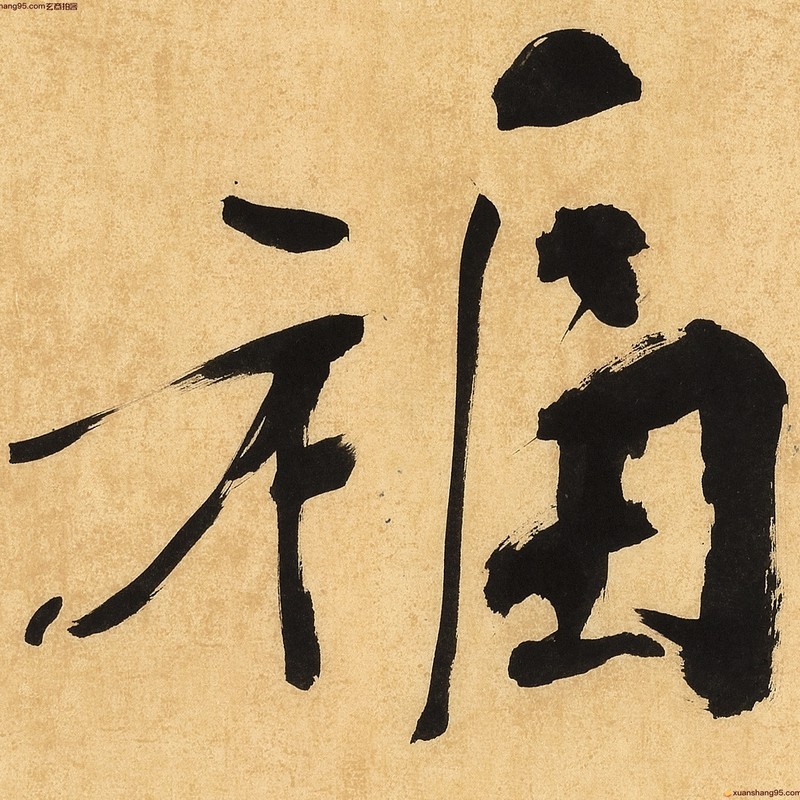 hang95.com
福
xuanshang95.com